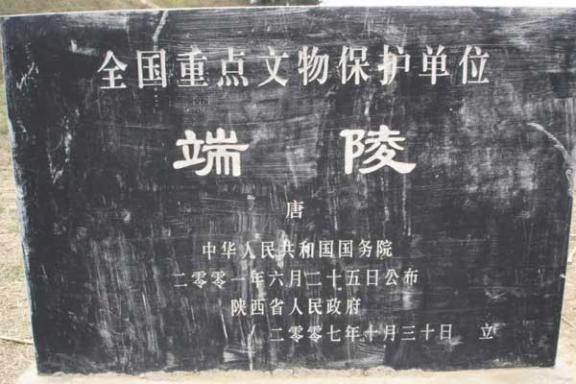 全国重点文物保护单位
端陵
唐
中华人民共和国国务院
二零零一年六月二十五日公布
陕西省人民政府
二零零七年十月三十日 立